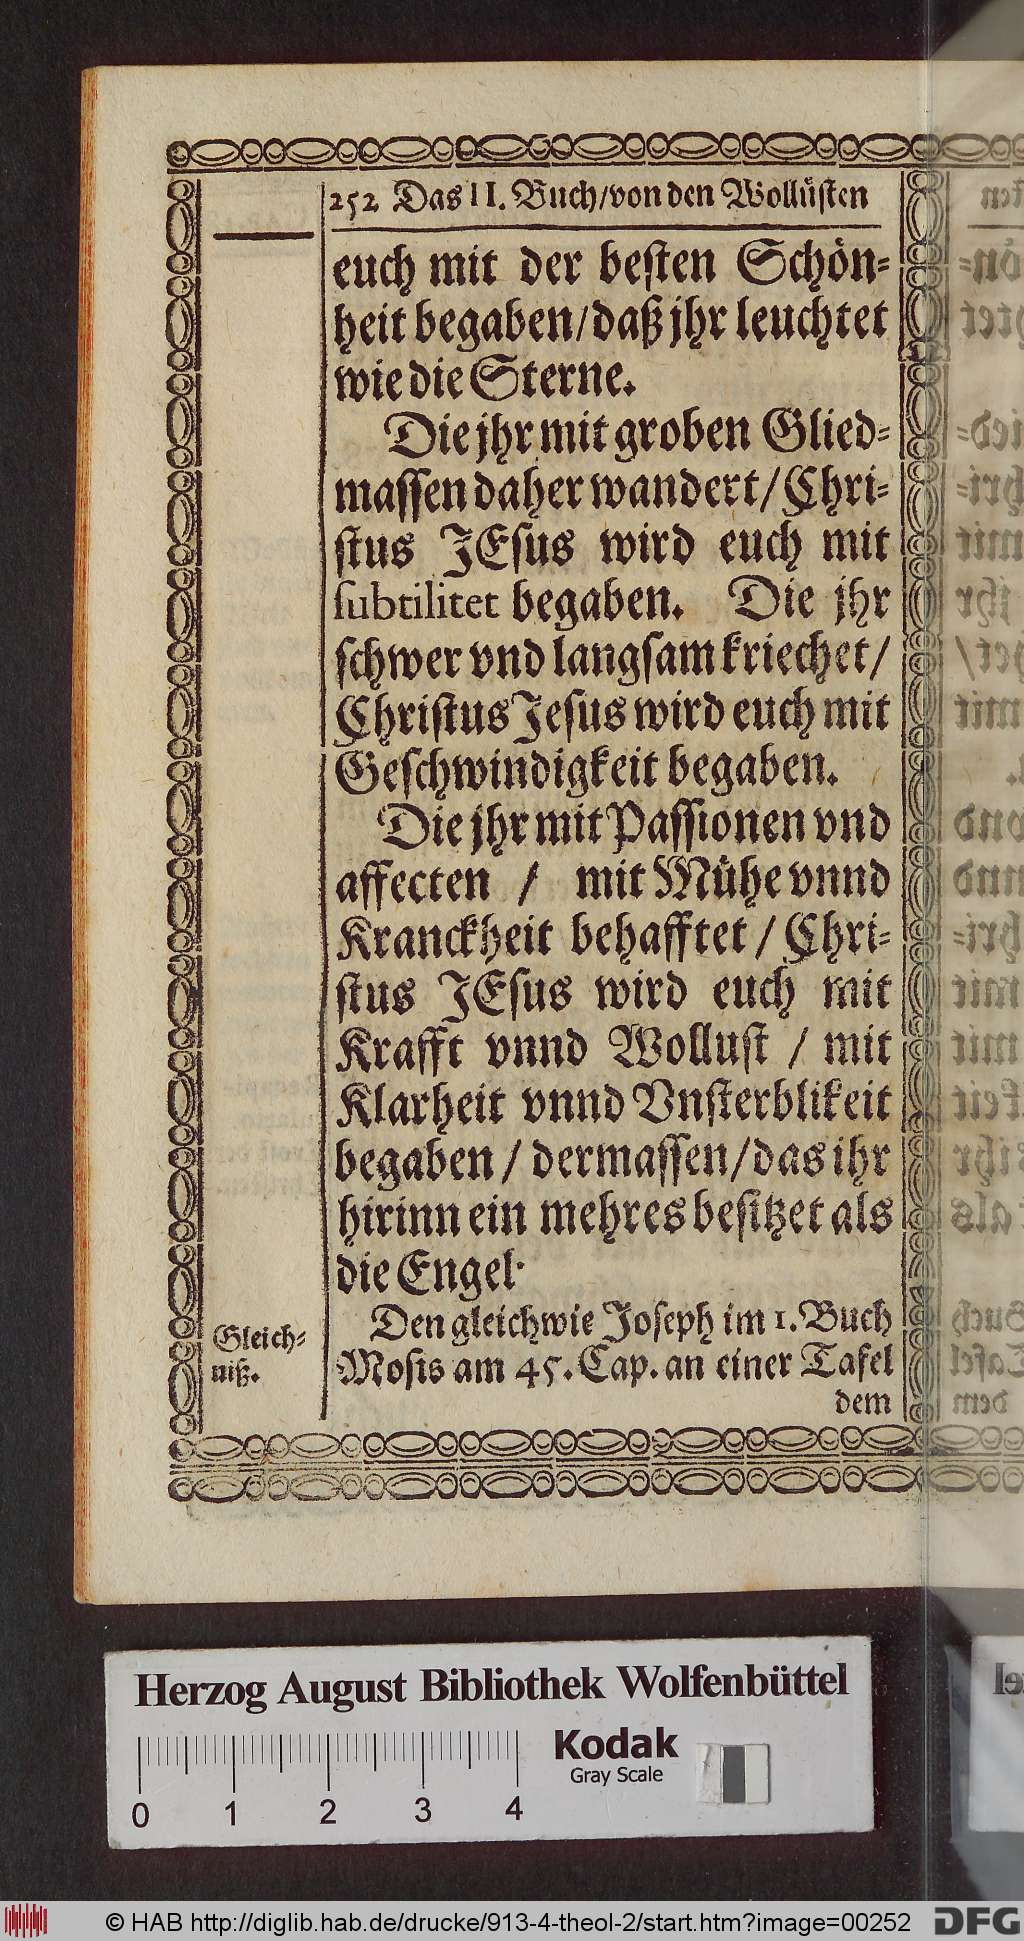 252 Das II. Buch/von den Wollüsten
euch mit der besten Schön-
heit begaben/daß jhr leuchtet
wie die Sterne.
Die jhr mit groben Glied-
massen daher wandert/Chri-
stus JEsus wird euch mit
subtilitet begaben. Die jhr
schwer vnd langsam kriechet/
Christus Jesus wird euch mit
Geschwindigkeit begaben.
Die jhr mit Passionen vnd
affecten / mit Mühe vnnd
Kranckheit behafftet / Chri-
stus JEsus wird euch mit
Krafft vnnd Wollust / mit
Klarheit vnnd Vnsterblikeit
begaben / dermassen/das ihr
hirinn ein mehres besitzet als
die Engel.
Gleich-
niß.
Den gleichwie Joseph im 1. Buch
Mosis am 45. Cap. an einer Tafel
dem
Herzog August Bibliothek Wolfenbüttel
Kodak
Gray Scale
0 1 2 3 4
© HAB http://diglib.hab.de/drucke/913-4-theol-2/start.htm?image=00252
DFG